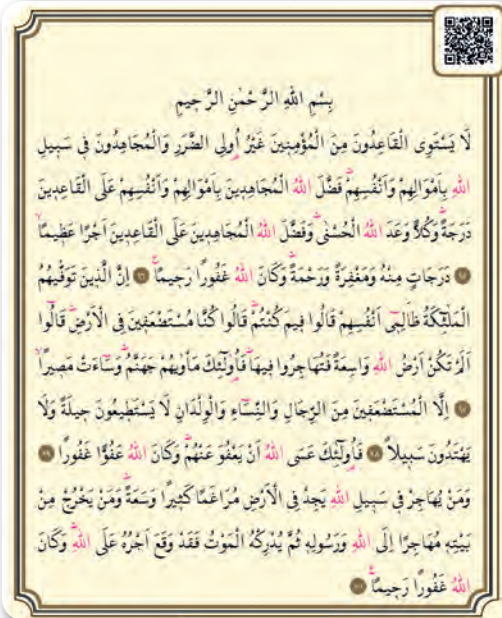 بِسْمِ اللهِ الرَّحْمٰنِ الرَّحِيمِ
لَا يَسْتَوِى الْقَاعِدُونَ مِنَ الْمُؤْمِنِينَ غَيْرُ اُولِى الضَّرَرِ وَالْمُجَاهِدُونَ فِى سَبِيلِ
اللهِ بِاَمْوَالِهِمْ وَاَنْفُسِهِمْۜ فَضَّلَ اللهُ الْمُجَاهِدِينَ بِاَمْوَالِهِمْ وَاَنْفُسِهِمْ عَلَى الْقَاعِدِينَ
دَرَجَةًۜ وَكُلًّا وَعَدَ اللهُ الْحُسْنٰىۜ وَفَضَّلَ اللهُ الْمُجَاهِدِينَ عَلَى الْقَاعِدِينَ اَجْرًا عَظِيمًاۙ
﴿٩٥﴾ دَرَجَاتٍ مِنْهُ وَمَغْفِرَةً وَرَحْمَةًۜ وَكَانَ اللهُ غَفُورًا رَحِيمًا۟ ﴿٩٦﴾ اِنَّ الَّذِينَ تَوَفّٰيهُمُ
الْمَلٰٓئِكَةُ ظَالِمِٓى اَنْفُسِهِمْ قَالُوا فِيمَ كُنْتُمْۜ قَالُوا كُنَّا مُسْتَضْعَفِينَ فِى الْاَرْضِۜ قَالُٓوا
اَلَمْ تَكُنْ اَرْضُ اللهِ وَاسِعَةً فَتُهَاجِرُوا فِيهَاۜ فَاُو۬لٰٓئِكَ مَاْوٰيهُمْ جَهَنَّمُۜ وَسَٓاءَتْ مَصِيرًاۙ
﴿٩٧﴾ اِلَّا الْمُسْتَضْعَفِينَ مِنَ الرِّجَالِ وَالنِّسَٓاءِ وَالْوِلْدَانِ لَا يَسْتَطِيعُونَ حِيلَةً وَلَا
يَهْتَدُونَ سَبِيلًاۙ ﴿٩٨﴾ فَاُو۬لٰٓئِكَ عَسَى اللهُ اَنْ يَعْفُوَ عَنْهُمْۜ وَكَانَ اللهُ عَفُوًّا غَفُورًا ﴿٩٩﴾
وَمَنْ يُهَاجِرْ فِى سَبِيلِ اللهِ يَجِدْ فِى الْاَرْضِ مُرَاغَمًا كَثِيرًا وَسَعَةًۜ وَمَنْ يَخْرُجْ مِنْ
بَيْتِهِ مُهَاجِرًا اِلَى اللهِ وَرَسُولِهِ ثُمَّ يُدْرِكْهُ الْمَوْتُ فَقَدْ وَقَعَ اَجْرُهُ عَلَى اللهِۜ وَكَانَ
اللهُ غَفُورًا رَحِيمًا۟ ﴿١٠٠﴾